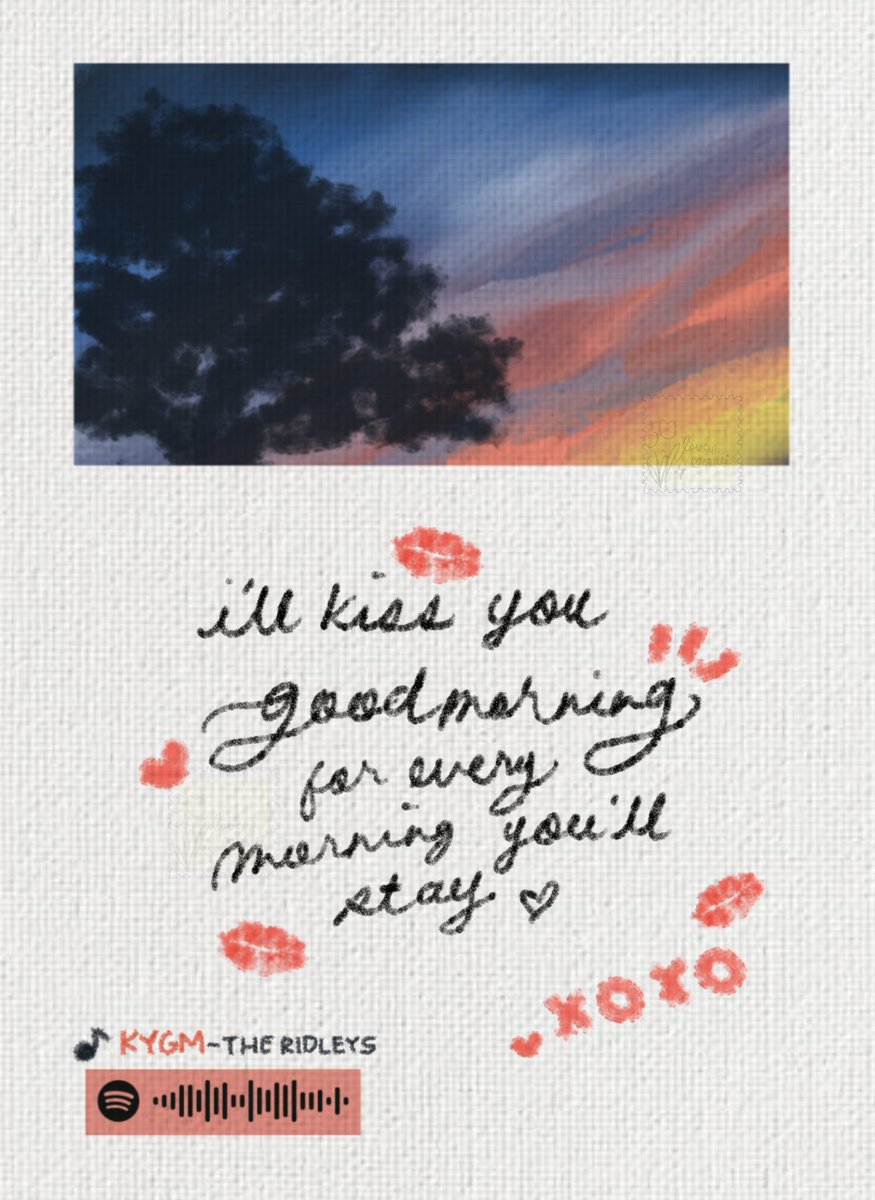 love,
i'll kiss you
goodmorning
for every
morning you'll
stay
XOXO
KYGM-THE RIDLEYS